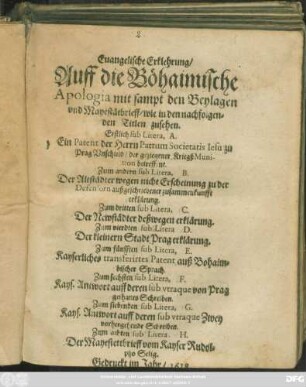 2
Euangelische Erklehrung/
Auff die Böhaimische
Apologia mit sampt den Beylagen
vnd Mayestätbrieff/wie in den nachfolgen-
den Titlen zusehen.
Erstlich sub Litera, A.
Ein Patent der Herrn Patrum Societatis Iesu zu
Prag Vnschuld/ der Krieg Muni-
tion betreffent.
Zum andern sub Litera, B.
Der Altstädter wegen nicht Erscheinung zu der
Defensorn außgeschribener zusammenkunfft
erklärung.
Zum dritten sub Litera, C.
Der Newstädter deßwegen erklärung.
Zum vierdten sub Litera D.
Der kleinern Stadt Prag erklärung.
Zum fünfften sub Litera, E.
Kayserliches transferirtes Patent auß Bohaim-
bischer Sprach.
Zum sechsten sub Litera, F.
Kays. Antwort auff deren sub vtraque von Prag
gethanes Schreiben.
Zum siebenden sub Litera, G.
Kays. Antwort auff deren sub vtraque Zwey
vorhergehende Schreiben.
Zum achten sub Litera: H.
Der Mayestettbrieff vom Kayser Rudol-
pho Selig.
Gedruckt im Jahr/ 1618